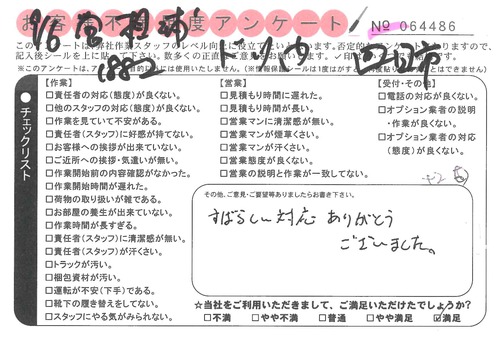 お客様不満足度アンケート
№ 064486
このアンケートは弊社作業スタッフのレベル向上に役立てたいと
記入後シールを上に貼って下さい。数多くの正直なご意見をお願いいます。
【作業】
□責任者の対応(態度)が良くない。
□他のスタッフの対応(態度)が良くない。
□作業を見ていて不安がある。
□責任者(スタッフ)に好感が持てない。
□お客様への挨拶が出来ていない。
□ご近所への挨拶・気遣いが無い。
□作業開始前の内容確認がなかった。
□作業開始時間が遅れた。
□荷物の取り扱いが雑である。
□お部屋の養生が出来ていない。
□作業時間が長すぎる。
□責任者(スタッフ)に清潔感が無い。
□責任者(スタッフ)が汗くさい。
□トラックが汚い。
□梱包資材が汚い。
□運転が不安(下手)である。
□靴下の履き替えをしてない。
□スタッフにやる気がみられない。
【営業】
□見積もり時間に遅れた。
□見積もり時間が長い。
□営業マンに清潔感が無い。
□営業マンが煙草くさい。
□営業マンが汗くさい。
□営業態度が良くない。
□営業の説明と作業が一致してない。
【受付・その他】
□電話の対応が良くない。
□オプション業者の説明
・作業が良くない。
□オプション業者の対応
(態度)が良くない。
● チェックリスト
その他、ご意見・ご要望等ありましたらお書き下さい。
すばらしい対応 ありがとう
ございました。
☆当社をご利用いただきまして、ご満足いただけたでしょうか?
□不満 □やや不満 □普通 □やや満足 ☑満足